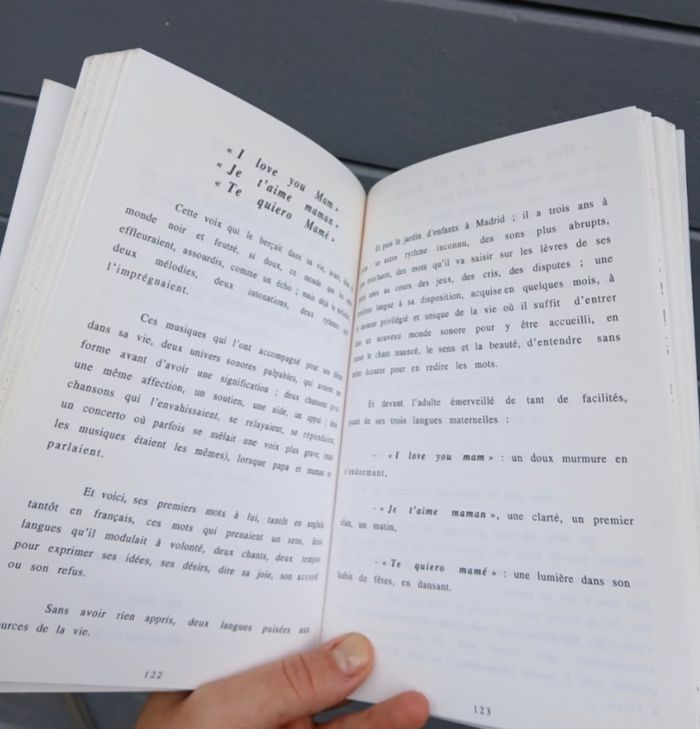 « I love you Mam »
« Je t'aime maman »
« Te quiero Mamé »
Cette voix qui le berçait dans sa vie, avant, dans
monde noir et feutré, si doux, ce monde que les
effleuraient, assourdis, comme un écho ; mais déjà la
deux mélodies, deux intonations, deux rythmes
l'imprégnaient.
Ces musiques qui l'ont accompagné pour ses
dans sa vie, deux univers sonores palpables, qui avaient
forme avant d'avoir une signification ; deux chansons pour
une même affection, un soutien, une aide, un appui ; deux
chansons qui l'envahissaient, se relayaient, se répondaient,
un concerto où parfois se mêlait une voix plus grave, (mais
les musiques étaient les mêmes), lorsque papa et maman se
parlaient.
Et voici, ses premiers mots à lui, tantôt en anglais,
tantôt en français, ces mots qui prenaient un sens, deux
langues qu'il modulait à volonté, deux chants, deux tempos
pour exprimer ses idées, ses désirs, dire sa joie, son accord
ou son refus.
Sans avoir rien appris, deux langues puisées aux
ources de la vie.
122
Et puis le jardin d'enfants à Madrid ; il a trois ans à
un autre rythme inconnu, des sons plus abrupts,
des mots qu'il va saisir sur les lèvres de ses
amis au cours des jeux, des cris, des disputes ; une
langue à sa disposition, acquise en quelques mois, à
moment privilégié et unique de la vie où il suffit d'entrer
un nouveau monde sonore pour y être accueilli, en
le chant nuancé, le sens et la beauté, d'entendre sans
écouter pour en redire les mots.
Et devant l'adulte émerveillé de tant de facilités,
de ses trois langues maternelles :
- « I love you mam » : un doux murmure en
s'endormant,
- « Je t'aime maman », une clarté, un premier
élan, un matin,
- « Te quiero mamé » : une lumière dans son
habit de fêtes, en dansant.
123